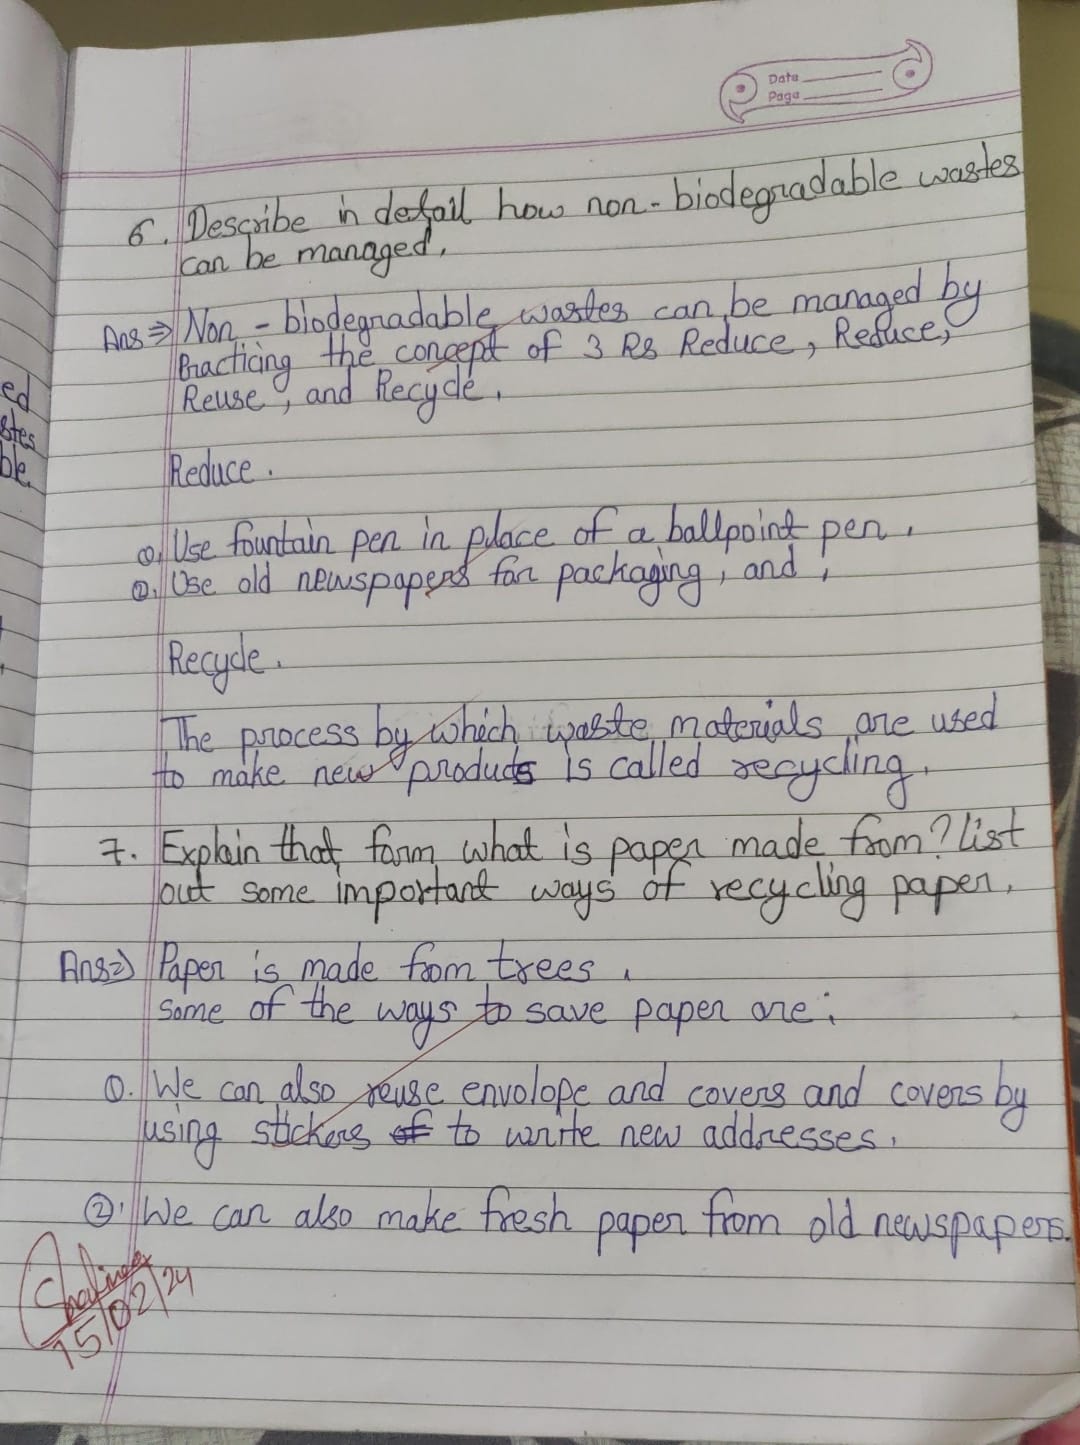 Date
Page
6. Describe in detail how non-biodegradable wastes
can be managed.
Ans⇒ Non-biodegradable wastes can be managed by
Practicing the concept of 3 Rs Reduce, Reduce,
Reuse, and Recycle.
ed
stes
ble.
Reduce.
①. Use fountain pen in place of a ballpoint pen.
②. Use old newspapers for packaging, and,
Recycle.
The process by which waste materials are used
to make new products is called recycling.
7. Explain that form what is paper made from? list
out some important ways of recycling paper.
Ans⇒ Paper is made from trees.
Some of the ways to save paper are:
①. We can also reuse envolope and covers and covers by
using stickers of to write new addresses.
②. We can also make fresh paper from old newspapers.
15/02/24